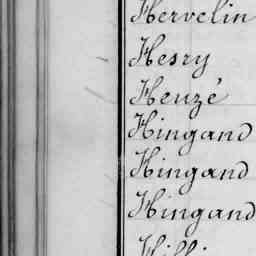 Hervelin
Hesry
Heuzé
Hingand
Hingand
Hingand